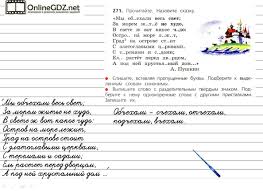 OnlineGDZ.net
271. Прочитайте. Назовите сказку.
«Мы объ..хали весь свет;
За морем ж..тьё не худо,
В свете ж вот какое чудо:
Остров на море л..жит,
Град на острове стоит
С златоглавыми церквами,
С теремами и садами;
Ель растёт перед дворцом,
А под ней хрустальный дом...»
А. Пушкин
Спишите, вставляя пропущенные буквы. Подберите к выделенным словам
Выпишите слово с разделительным твёрдым знаком. Подберите к нему однокоренные слова с другими приставками. Запишите их.
"Мы объехали весь свет;
За морем житье не худо,
В свете ж вот какое чудо:
Остров на море лежит,
Град на острове стоит
С златоглавыми церквами,
С теремами и садами;
Ель растет перед дворцом,
А под ней хрустальный дом...
Объехали - съехали, отъехали,
подъехали, въехали.